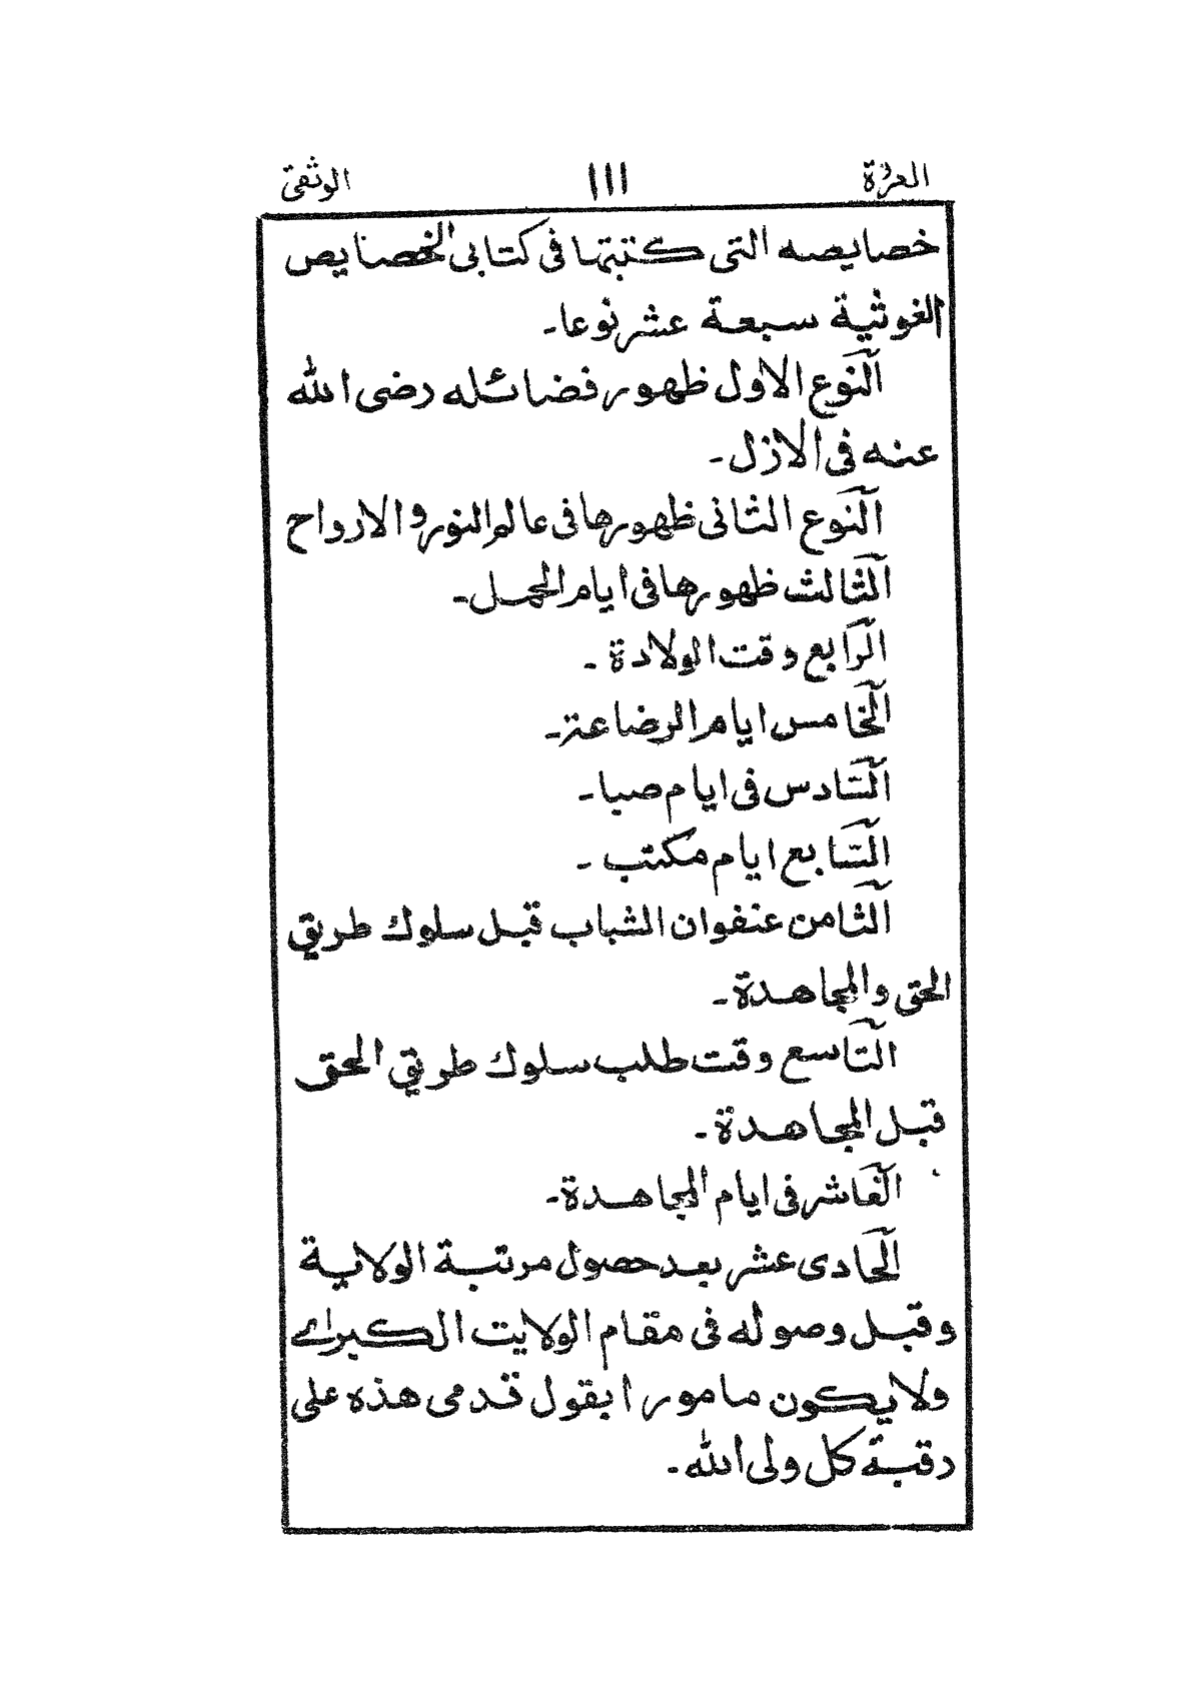 العروة ١١١ الوثقى
خصايصه التى كتبتها فى كتابى الخصايص
الغوثية سبعة عشر نوعا-
اَلنَّوع الاول ظهور فضائله رضى الله
عنه فى الازل-
اَلنَّوع الثانى ظهورها فى عالم النور و الارواح
اَلثَّالث ظهورها فى ايام الحمل-
اَلرَّابع وقت الولادة -
اَلخَامس ايام الرضاعة-
اَلسَّادس فى ايام صبا-
اَلسَّابع ايام مكتب -
اَلثَّامن عنفوان الشباب قبل سلوك طريق
الحق والمجاهدة-
اَلتَّاسع وقت طلب سلوك طريق الحق
قبل المجاهدة-
اَلعَاشر فى ايام المجاهدة-
اَلحَادى عشر بعد حصول مرتبة الولاية
وقبل وصوله فى مقام الولايت الكبرٰى
ولا يكون مامورا بقول قدمى هذه على
رقبة كل ولى الله-